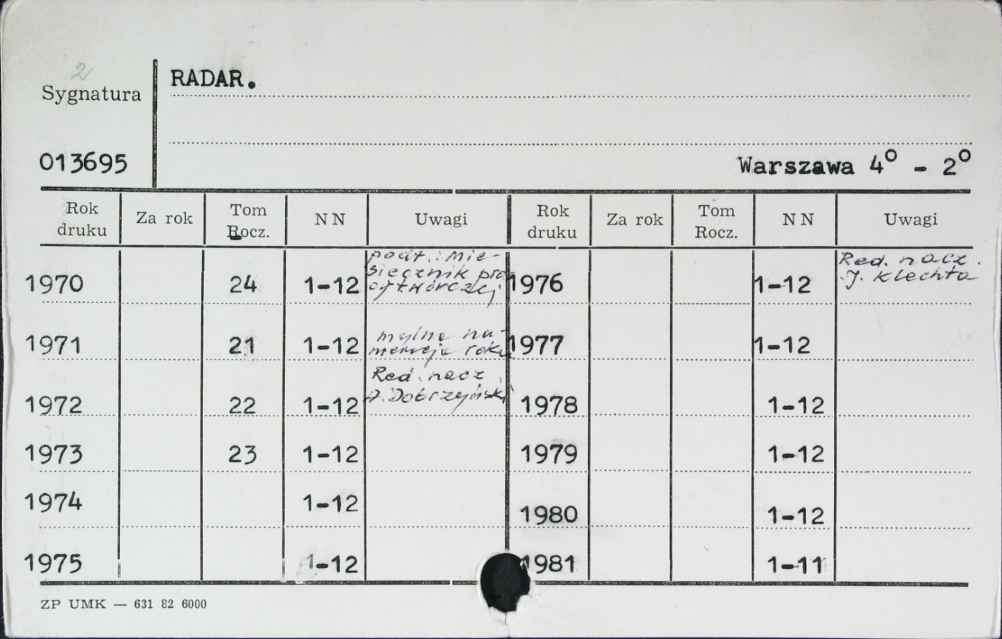 2
Sygnatura
RADAR.
013695
Warszawa 4° - 2°
Rok druku Za rok Tom Rocz. NN Uwagi Rok druku Za rok Tom Rocz. NN Uwagi
1970 24 1-12 podt.: Mie-
sięcznik pra
cy twórczej
1976 1-12 Red. nacz.
J. Klechta
1971 21 1-12 mylna nu-
meracja roku
1977 1-12
1972 22 1-12 Red. nacz.
A. Dobrzyński
1978 1-12
1973 23 1-12 1979 1-12
1974 1-12 1980 1-12
1975 1-12 1981 1-11
ZP UMK — 631 82 6000